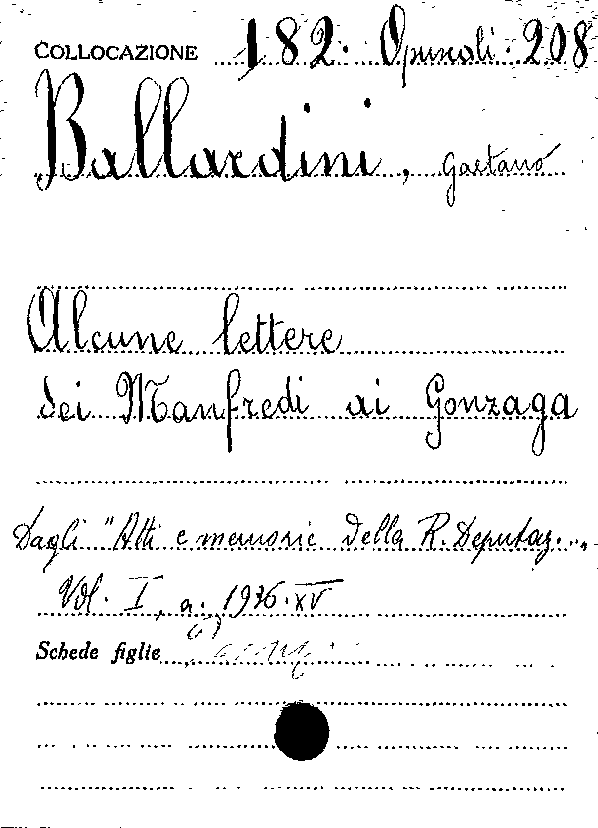 COLLOCAZIONE 182. Opuscoli. 208
Ballardini, Gaetano
Alcune lettere
dei Manfredi ai Gonzaga
Dagli "Atti e memorie della R. Deputaz. ..„
Vol. I, a. 1936-XV
Schede figlie